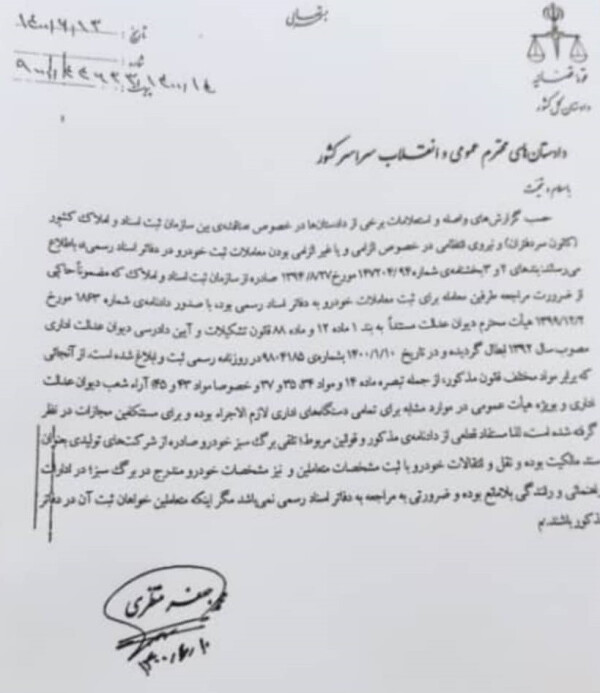 بسمه تعالی
تاریخ: ۱۴۰۰,۶,۱۳
شماره:
قوه قضاییه
دادستان کل کشور
دادستان‌های محترم عمومی و انقلاب سراسر کشور
با سلام و تحیت
حسب گزارش‌های واصله و استعلامات برخی از دادستان‌ها در خصوص مناقشه‌ی بین سازمان ثبت اسناد و املاک کشور
(کانون سردفتران) و نیروی انتظامی در خصوص الزامی و یا غیر الزامی بودن معاملات ثبت خودرو در دفاتر اسناد رسمی، باطلاع
می‌رساند: بندهای ۲ و ۳ بخشنامه‌ی شماره ۱۴۷۲۰۴/۹۴ مورخ ۱۳۹۴/۸/۲۷ صادره از سازمان ثبت اسناد و املاک که مضموناً حاکی
از ضرورت مراجعه طرفین معامله برای ثبت معاملات خودرو به دفاتر اسناد رسمی بوده، با صدور دادنامه‌ی شماره ۱۸۶۳ مورخ
۱۳۹۹/۱۲/۲ هیأت محترم دیوان عدالت مستنداً به بند ۱ ماده ۱۲ و ماده ۸۸ قانون تشکیلات و آیین دادرسی دیوان عدالت اداری
مصوب سال ۱۳۹۲ ابطال گردیده و در تاریخ ۱۴۰۰/۱/۱۰ بشماره‌ی ۹۸۰۴۱۸۵ در روزنامه رسمی ثبت و ابلاغ شده است. از آنجائی
که برابر مواد مختلف قانون مذکور، از جمله تبصره ماده ۱۴ و مواد ۳۴، ۳۵ و ۳۷ و خصوصا مواد ۴۳ و ۴۵؛ آراء شعب دیوان عدالت
اداری و بویژه هیأت عمومی در موارد مشابه برای تمامی دستگاه‌های اداری لازم الاجراء بوده و برای مستنکفین مجازات در نظر
گرفته شده است، لذا مستفاد قطعی از دادنامه‌ی مذکور و قوانین مربوط؛ تلقی برگ سبز خودرو صادره از شرکت‌های تولیدی بعنوان
سند مالکیت بوده و نقل و انتقالات خودرو با ثبت مشخصات متعاملین و نیز مشخصات خودرو مندرج در برگ سبز؛ در ادارات
راهنمائی و رانندگی بلامانع بوده و ضرورتی به مراجعه به دفاتر اسناد رسمی نمی‌باشد مگر اینکه متعاملین خواهان ثبت آن در دفاتر
مذکور باشند.
محمد جعفر منتظری
۱۴۰۰,۶,۱۰